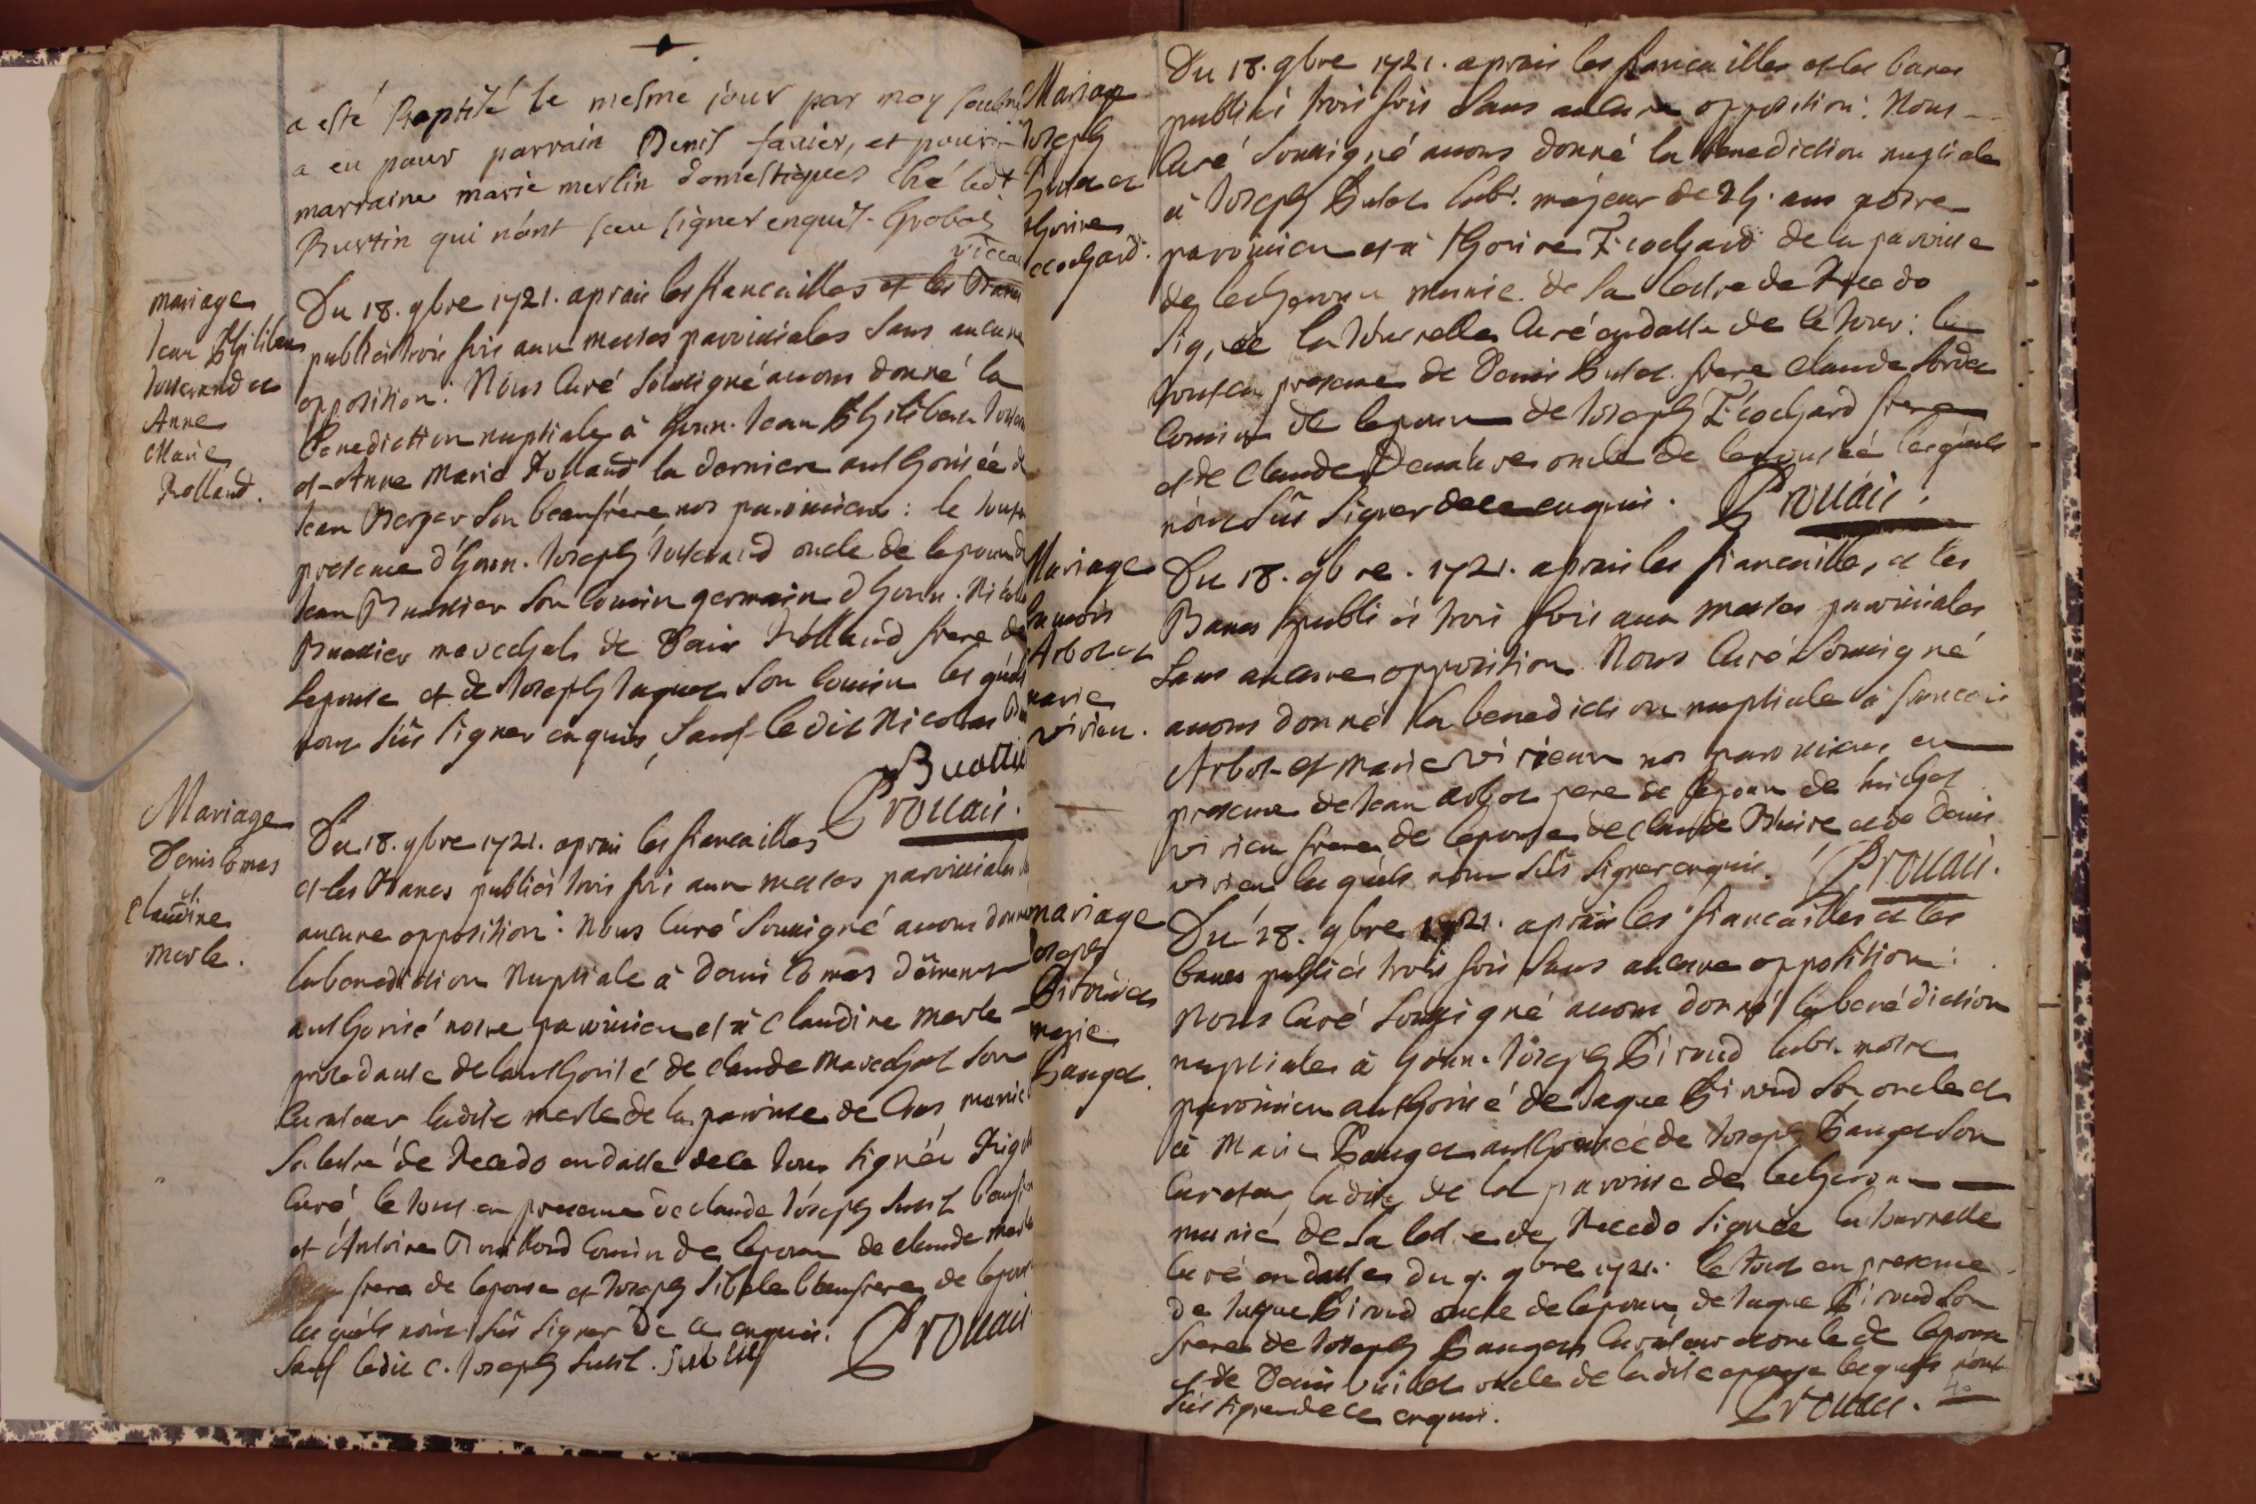 a esté Baptisé le mesme jour par moy
a eu pour parrain Denis favier, et pour
marraine marie merlin domestiques
Burtin qui n'ont sceu signer enquis. Grobois
vicca
mariage
Jean Philibert
Jusserand et
Anne
Marie
Rolland.
Du 18. 9bre 1721. aprais les fiancailles et les Bans
publiés trois fois aux messes paroissiales sans aucune
opposition: Nous Curé soussigné avons donné la
benediction nuptiale à honn. Jean Philibert
et Anne Marie Rolland la derniere authorisée de
Jean Berger son beaufrère nos paroissiens: le tout
presence d'honn. Joseph Jusserand oncle de lepoux
Jean Buattier son cousin germain d'honn. Nicolas
Buattier marechals de Denis Rolland frere de
lepouse et de Joseph Jaquet son cousin les quels
nont sûs signer enquis, sauf ledit Nicolas
Buattie
Prouais.
Mariage
Denis Comas
et
Claudine
merle.
Du 18. 9bre 1721. aprais les fiancailles
et les Bancs publiés trois fois aux messes paroissiales
aucune opposition: Nous Curé soussigné avons donné
la benediction Nuptiale à Denis Comas dûement
authorisé notre paroissien et à Claudine merle
procedante de lauthorité de Claude Marechal son
Curateur ladite merle de la paroisse de Cras, munie
sa lettre de Recedo en datte de ce Jour signée
Curé le tout en presence de Claude Joseph
et Antoine Rouillard cousin de lepoux de claude
frere de lepouse et Joseph beaufrere de
les quels n'ont sûs signer de ce enquis.
sauf ledit C. Joseph
Prouais
Mariage
Joseph
Butet et
Honire
cochard.
Du 18. 9bre 1721. aprais les fiancailles et les bancs
publiés trois fois sans aucune opposition: Nous
Curé soussigné avons donné la benediction nuptiale
à Joseph Butet lab. majeur de 25. ans notre
paroissien et à Honire Ecochard de la paroisse
de lecheroux munie de sa lettre de Recedo
signée la tournelle Curé en datte de ce Jour: le
tout en presence de Denis Butet frere Claude
Cousin de lepoux de Joseph Ecochard frere
et de Claude oncle de lepousée lesquels
n'ont sûs signer de ce enquis. Prouais.
Mariage
francois
Arbot et
marie
virieu.
Du 18. 9bre. 1721. aprais les fiancailles, et les
Bancs publiés trois fois aux messes paroissiales
sans aucune opposition Nous Curé soussigné
avons donné la benediction nuptiale à francois
Arbot et marie virieux nos paroissiens en
presence de Jean arbot pere de lepoux de michel
virieu frere de lepouse de claude et de Denis
virieu les quels n'ont sûs signer enquis. Prouais.
mariage
Joseph
Piroud et
marie
Panget.
Du 18. 9bre 1721. aprais les fiancailles et les
bancs publiés trois fois sans aucune opposition:
Nous Curé soussigné avons donné la benédiction
nuptiales à honn. Joseph Piroud lab. notre
paroissien authorisé de Jaque Piroud son oncle et
à Marie Panget authorisée de Joseph Panget son
Curateur, ladite de la paroisse de lecheroux
munie de sa lettre de Recedo signée la tournelle
Curé en datte du 9. 9bre 1721. le tout en presence
de Jaque Piroud oncle de lepoux, de Jaque Piroud son
frere de Joseph Panget Curateur et oncle de lepouse
et de Denis vuillet oncle de ladite epouse les quels n'ont
sûs signer de ce enquis. Prouais.